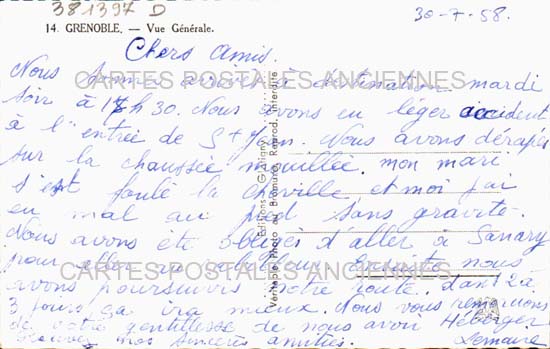 381397 D
30-7-58.
14. GRENOBLE. — Vue Générale.
Chers Amis.
Nous sommes arrivés à destination mardi
soir à 17h30. Nous avons eu léger accident
à l'entrée de St Nous avons dérapés
sur la chaussée mouillée. mon mari
s'est foulé la cheville et moi j'ai
eu mal au pied sans gravité.
Nous avons été obligés d'aller à Sanary
pour aller au Ensuite nous
avons poursuivis notre route. dans 2 à
3 jours ça ira mieux. Nous vous remercions
de votre gentillesse de nous avoir Héberger
nos sincères amitiés. Lemaire
CARTES POSTALES ANCIENNES
CARTES POSTALES ANCIENNES
Editions
Véritable Photo au Bromure, Reprod. Interdite